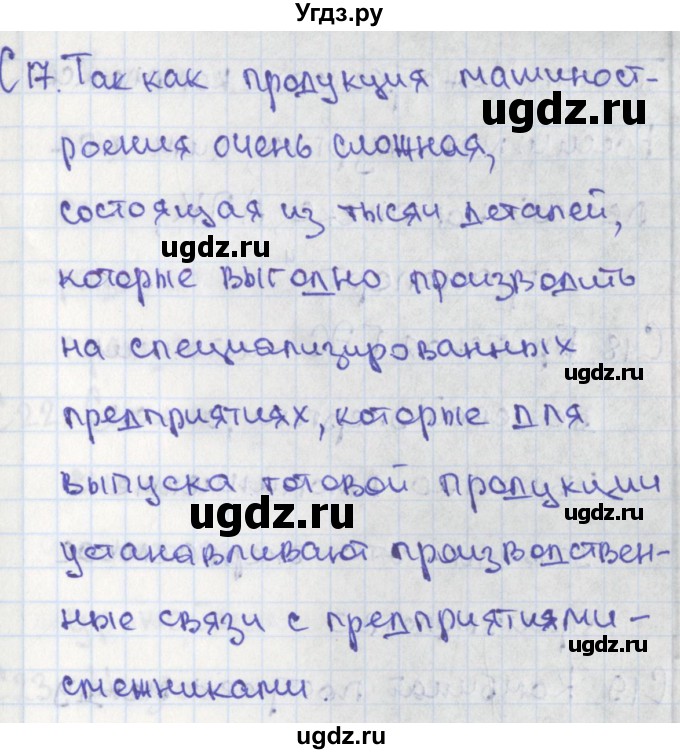 Угдз.ру
С17. Так как продукция машиност-
роения очень сложная,
состоящая из тысяч деталей,
которые выгодно производить
на специализированных
предприятиях, которые для
выпуска готовой продукции
устанавливают производствен-
ные связи с предприятиями-
смежниками.
ugdz.ru
ugdz.ru
ugdz.ru
ugdz.ru
ugdz.ru
ugdz.ru
ugdz.ru
ugdz.ru
ugdz.ru
ugdz.ru